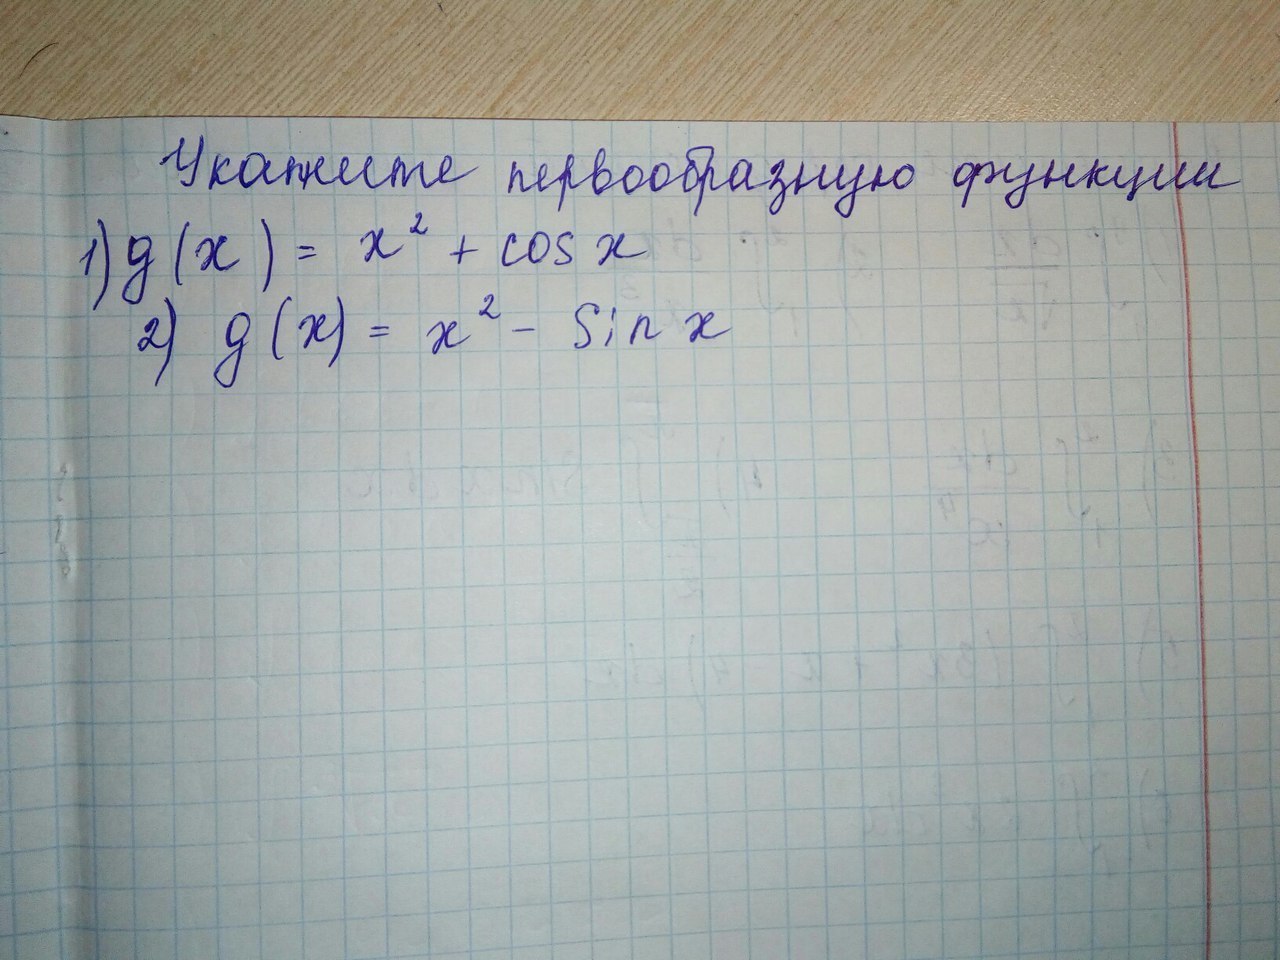 Укажите первообразную функции
1) g(x) = x² + cos x
2) g(x) = x² - Sin x